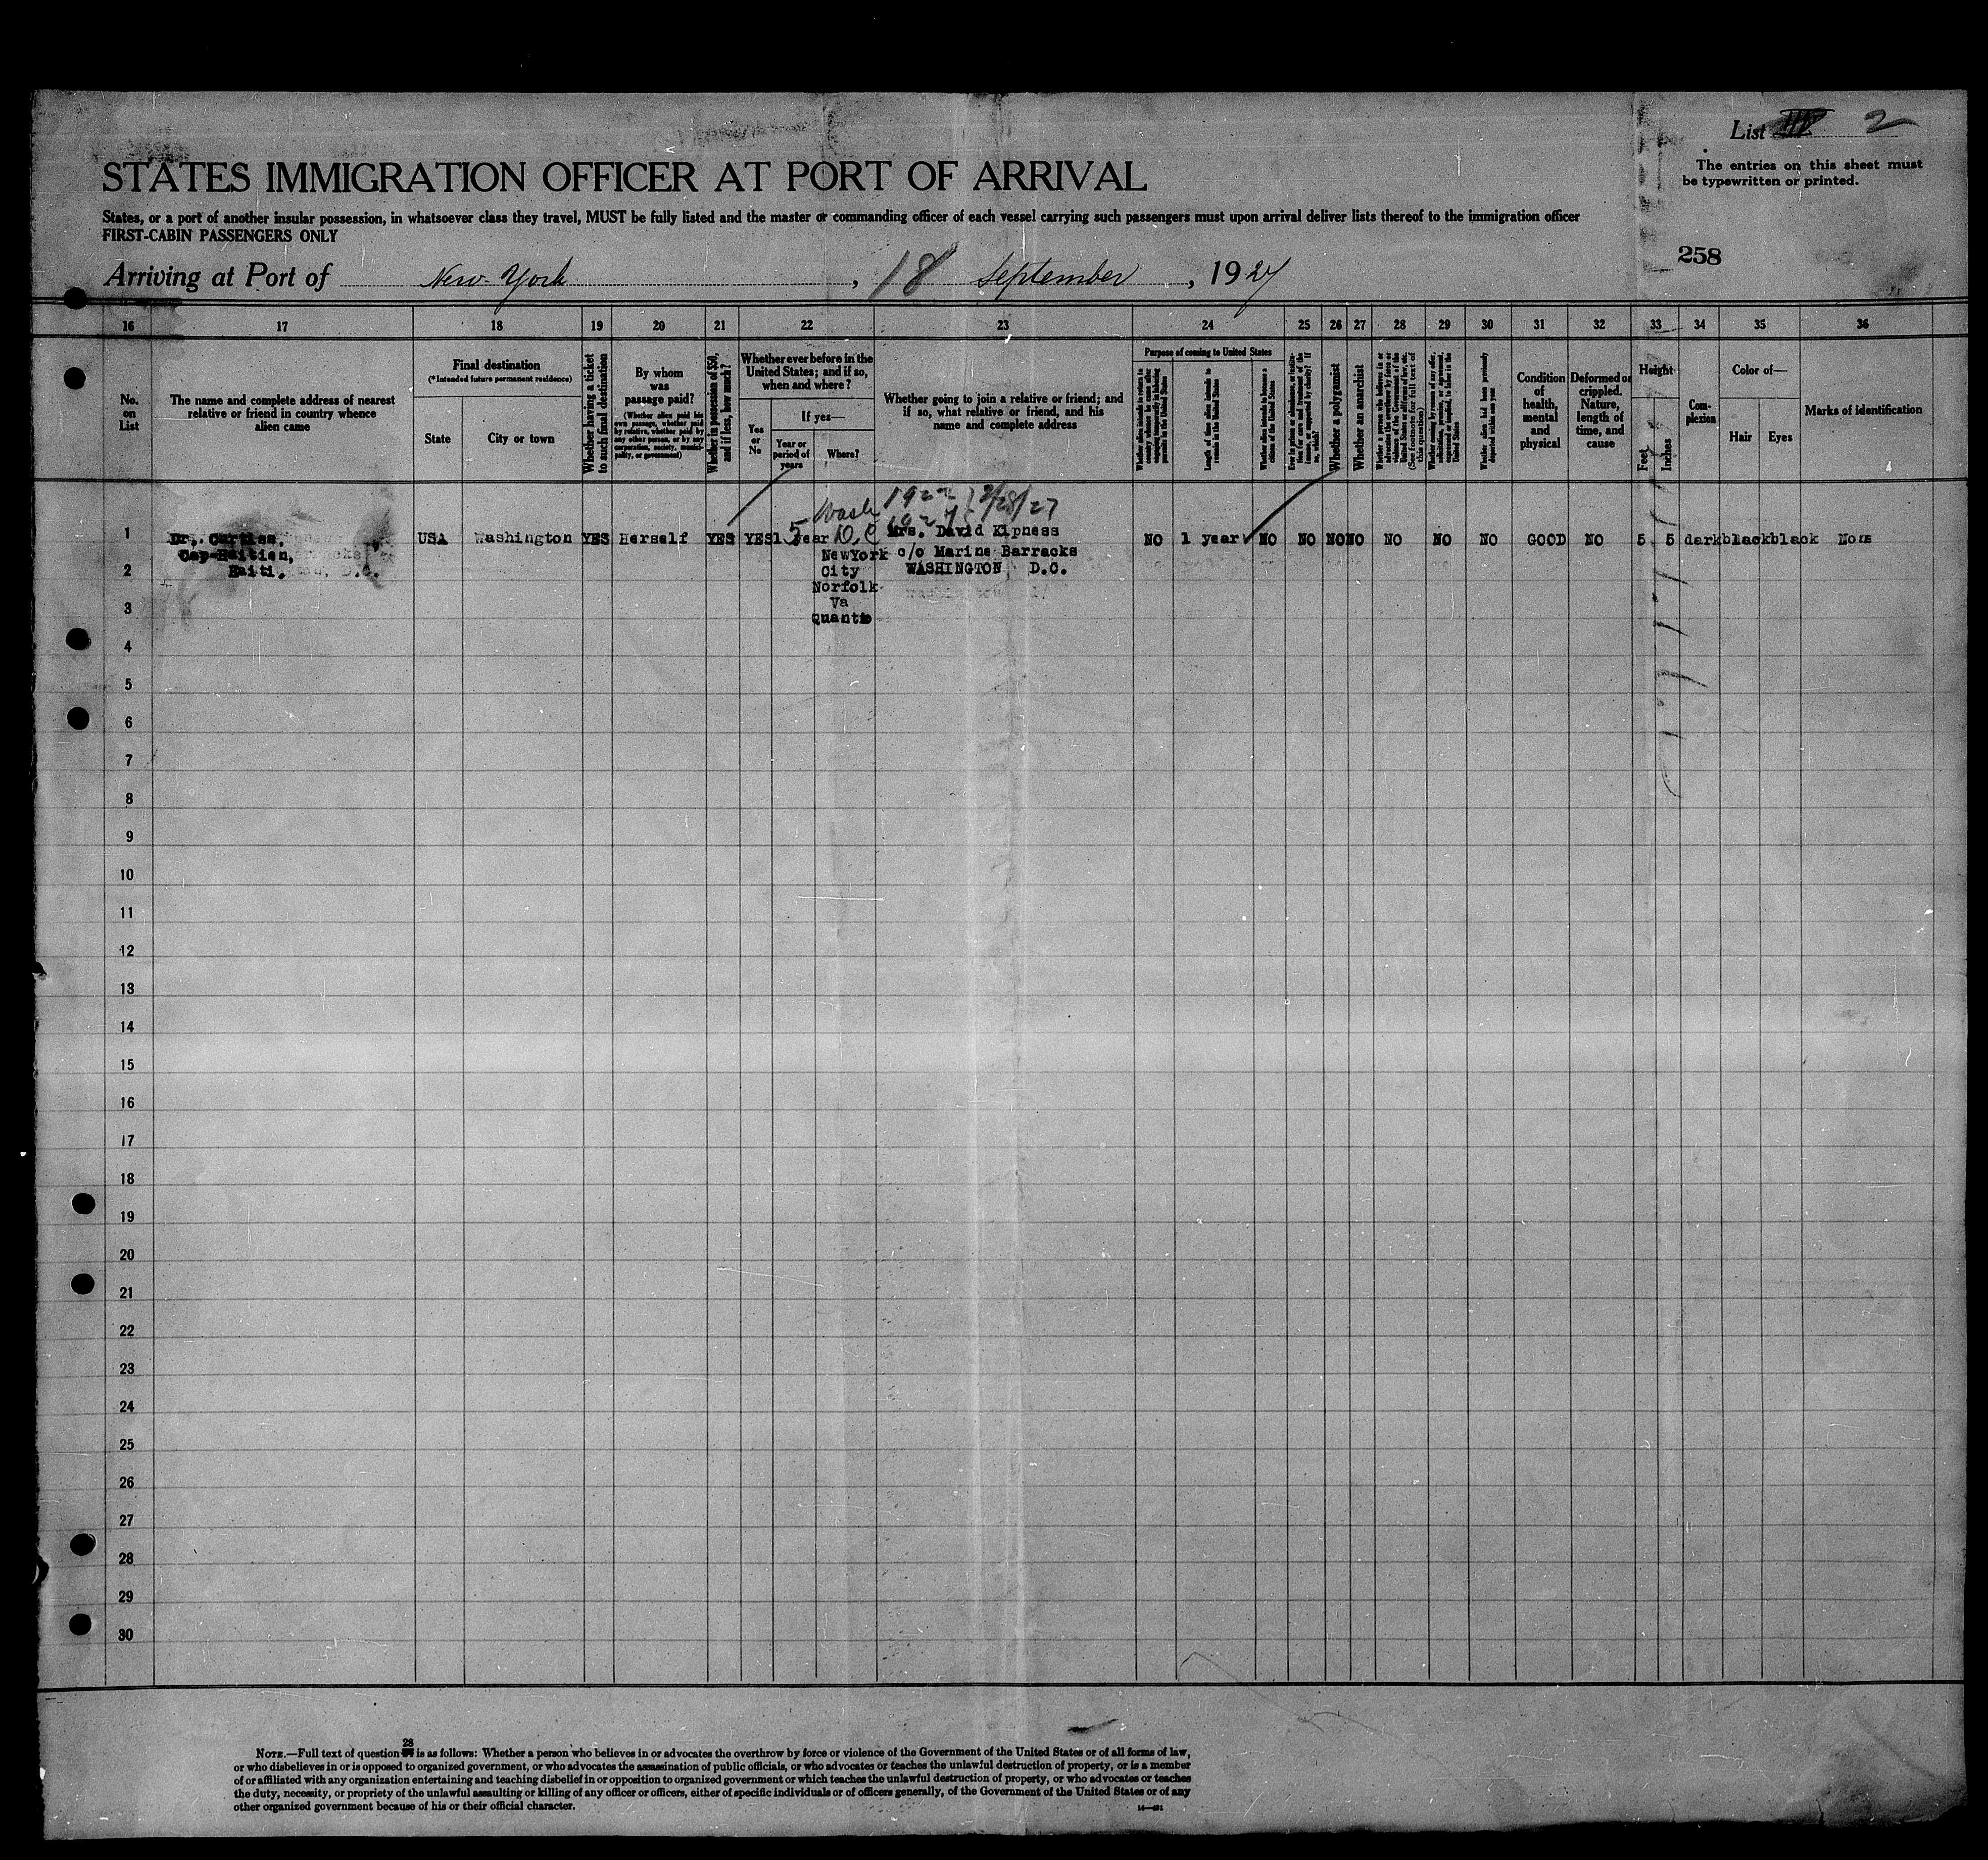 List 2
The entries on this sheet must
be typewritten or printed.
STATES IMMIGRATION OFFICER AT PORT OF ARRIVAL
States, or a port of another insular possession, in whatsoever class they travel, MUST be fully listed and the master or commanding officer of each vessel carrying such passengers must upon arrival deliver lists thereof to the immigration officer
FIRST-CABIN PASSENGERS ONLY
258
Arriving at Port of New York, 18 September, 1927
16 17 18 19 20 21 22 23 24 25 26 27 28 29 30 31 32 33 34 35 36
No.
on
List
The name and complete address of nearest
relative or friend in country whence
alien came
Final destination
(*Intended future permanent residence)
State
City or town
Whether having a ticket
to such final destination
By whom
was
passage paid?
(Whether alien paid his
own passage, whether paid
by relative, whether paid by
any other person, or by any
corporation, society, munici-
pality, or government)
Whether in possession of $50,
and if less, how much?
Whether ever before in the
United States; and if so,
when and where?
Yes
or
No
If yes—
Year or
period of
years
Where?
Whether going to join a relative or friend; and
if so, what relative or friend, and his
name and complete address
Purpose of coming to United States
Length of time alien intends to
remain in the United States
Whether alien intends to become a
citizen of the United States
Whether a polygamist
Whether an anarchist
(See footnote for full text of
this question)
Whether alien had been previously
deported within one year
Condition
of
health,
mental
and
physical
Deformed or
crippled.
Nature,
length of
time, and
cause
Height
Feet
Inches
Com-
plexion
Color of—
Hair
Eyes
Marks of identification
Wash 1922 12/28/27
1 Dr. Curtiss. USA Washington YES Herself YES YES 1 year D.C. Mrs. David Kipness NO 1 year NO NO NO NO NO NO NO GOOD NO 5 5 dark black black None
Cap-Haitien, NewYork c/o Marine Barracks
2 Haiti. City WASHINGTON, D.C.
Norfolk
3 Va
Quantio
4
5
6
7
8
9
10
11
12
13
14
15
16
17
18
19
20
21
22
23
24
25
26
27
28
29
30
28
NOTE.—Full text of question is as follows: Whether a person who believes in or advocates the overthrow by force or violence of the Government of the United States or of all forms of law,
or who disbelieves in or is opposed to organized government, or who advocates the assassination of public officials, or who advocates or teaches the unlawful destruction of property, or is a member
of or affiliated with any organization entertaining and teaching disbelief in or opposition to organized government or which teaches the unlawful destruction of property, or who advocates or teaches
the duty, necessity, or propriety of the unlawful assaulting or killing of any officer or officers, either of specific individuals or of officers generally, of the Government of the United States or of any
other organized government because of his or their official character.